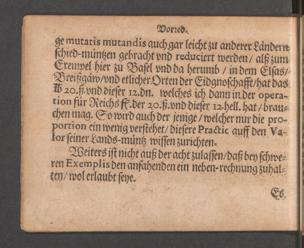 Vorred.
ge mutatis mutandis auch gar leicht zu anderer Ländern
schied-müntzen gebracht vnd reduciert werden / alß zum
Exempel hier zu Basel vnd da herumb / in dem Elsas /
Breißgäw / vnd etlicher Orten der Eidgnoßschafft / hat das
20. ß. vnd dieser 12. dn. welches ich dann in der opera-
tion für Reichs ff. der 20. ß. vnd dieser 12. hell. hat / brau-
chen mag. So wird auch der jenige / welcher nur die pro-
portion ein wenig verstehet / diesere Practic auff den Va-
lor seiner Lands-müntz wissen zurichten.
Weiters ist nicht auß der acht zulassen / daß bey schwe-
ren Exemplis den anfahenden ein neben-rechnung zuhal-
ten / wol erlaubt seye.
Es